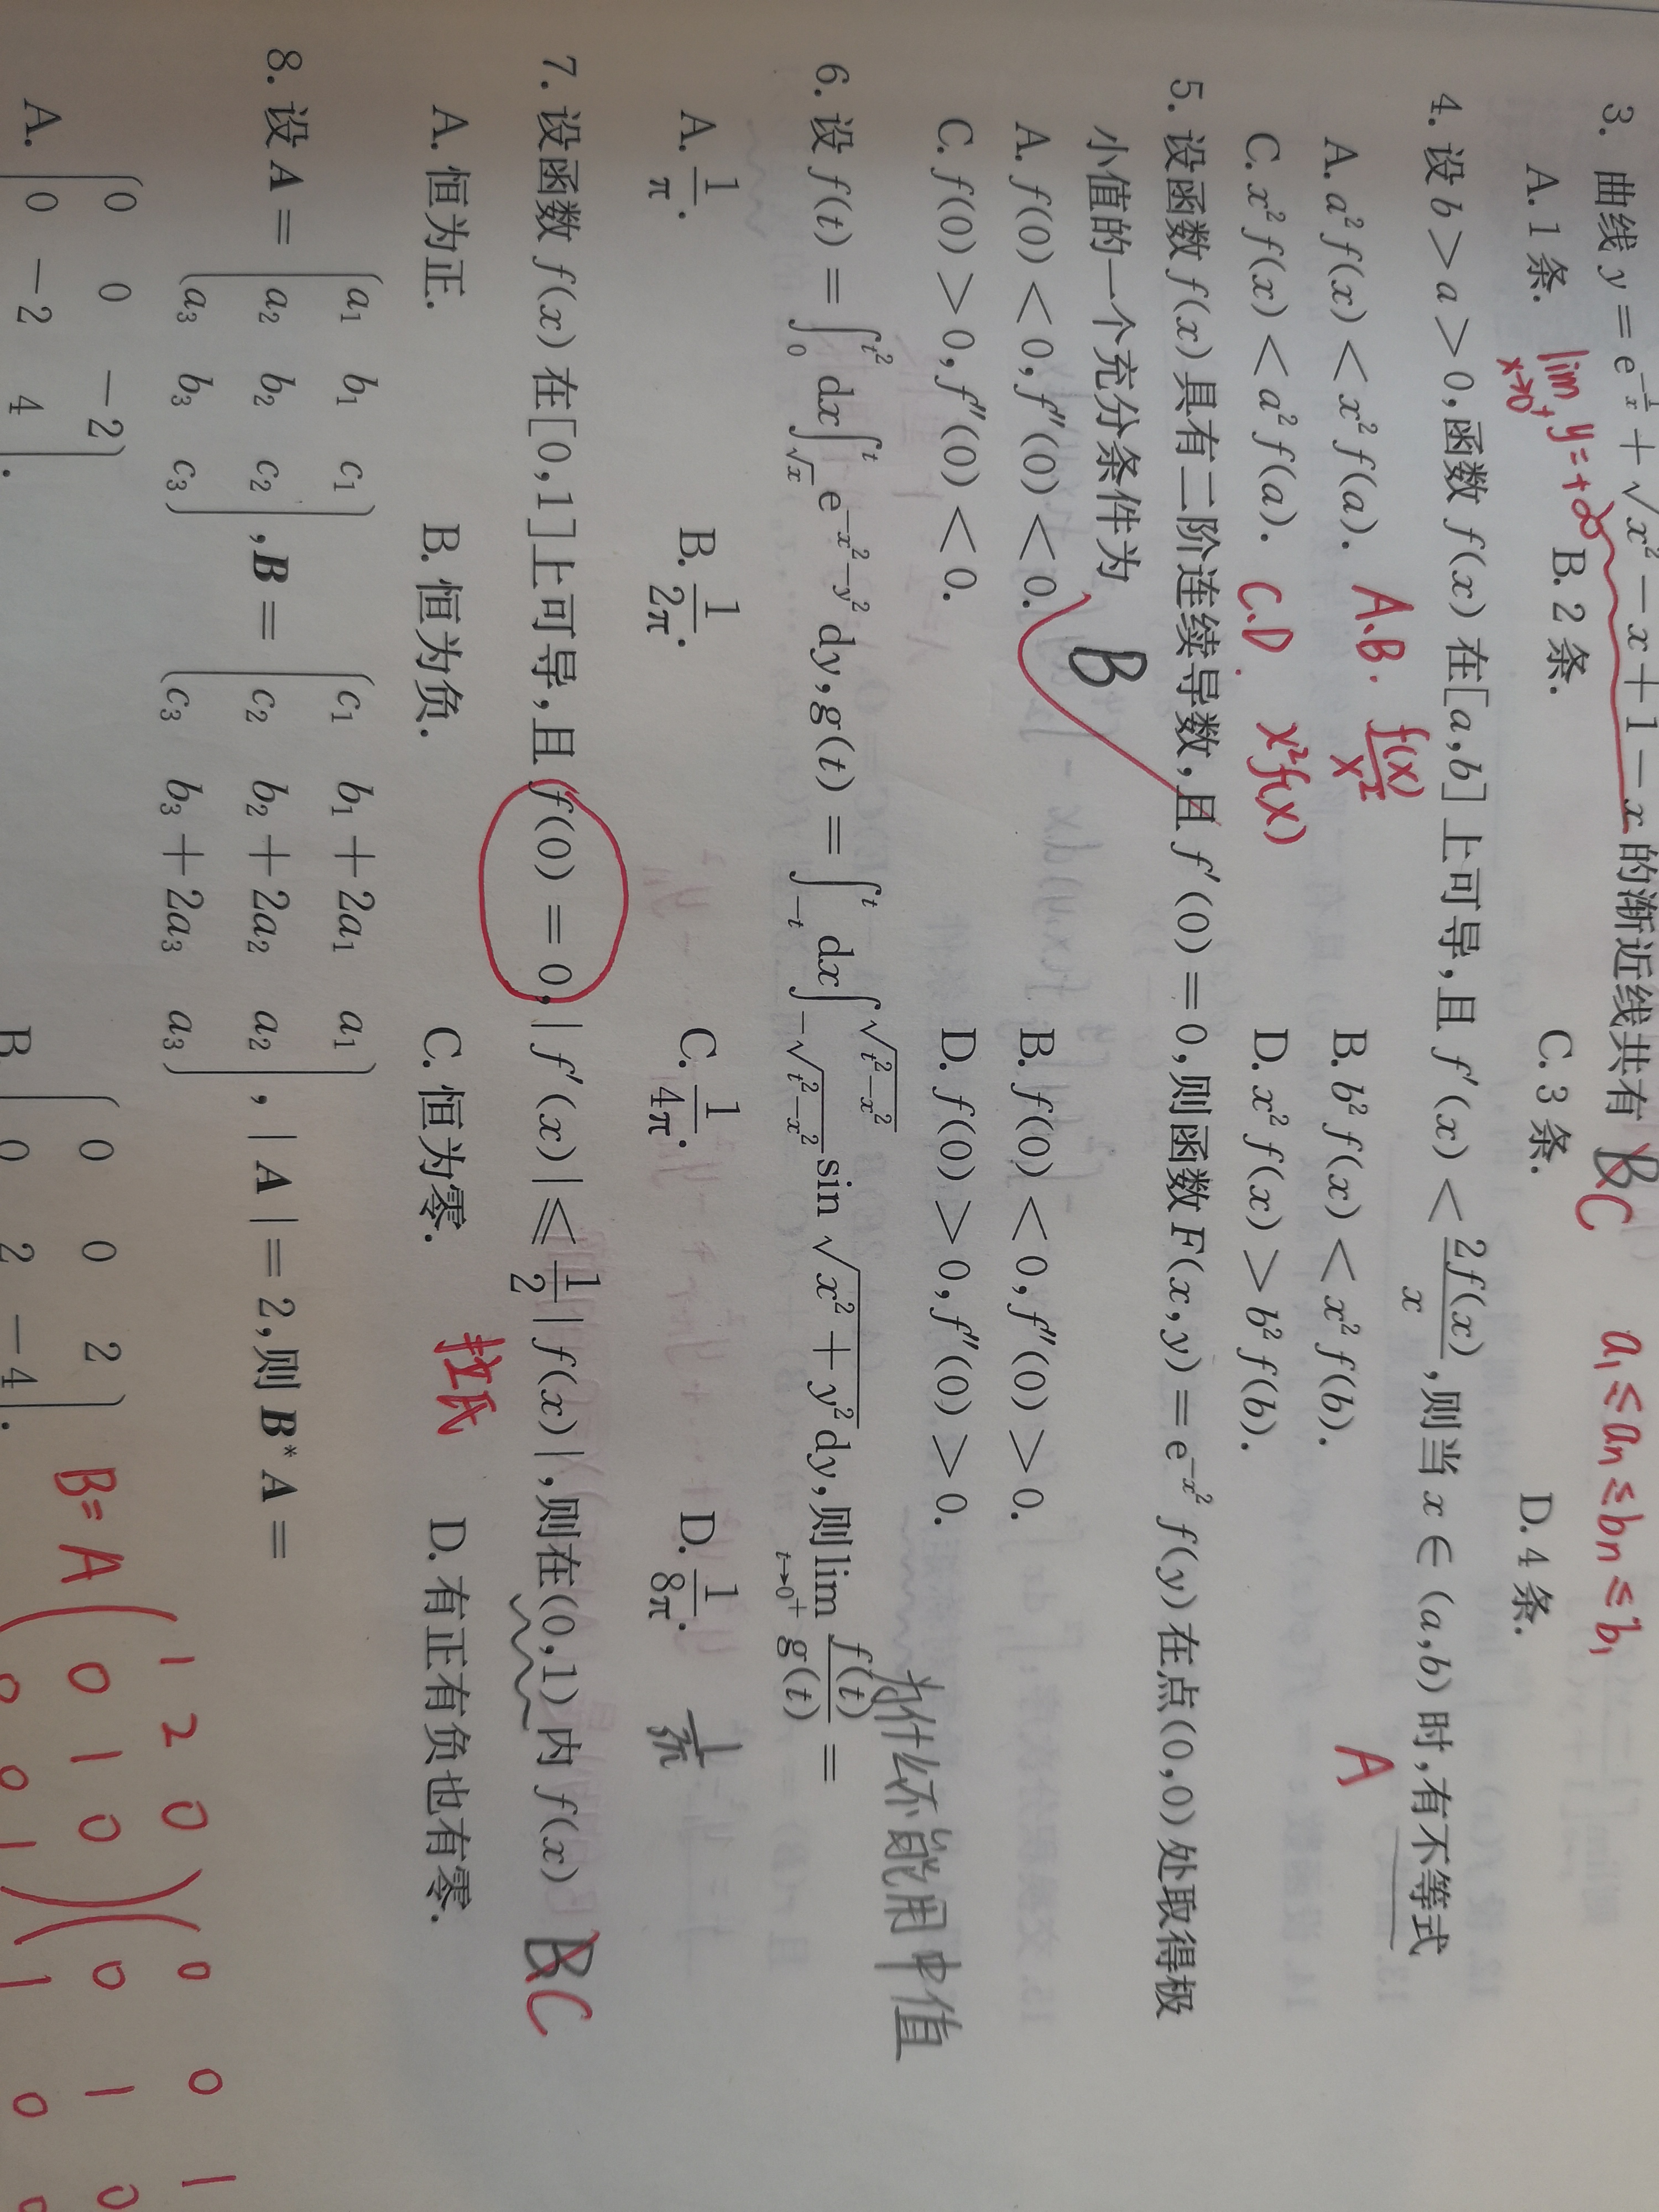 3. 曲线 y = e^{-\frac{1}{x}} + \sqrt{x^2 - x + 1} - x 的渐近线共有 B C a_1 ≤ a_n ≤ b_n ≤ b_1
A. 1 条. B. 2 条. C. 3 条. D. 4 条.
\lim_{x→0^+} y = +∞
4. 设 b > a > 0, 函数 f(x) 在 [a,b] 上可导, 且 f′(x) < \frac{2f(x)}{x}, 则当 x ∈ (a,b) 时, 有不等式
A. a^2 f(x) < x^2 f(a). A.B. \frac{f(x)}{x^2} B. b^2 f(x) < x^2 f(b). A
C. x^2 f(x) < a^2 f(a). C.D. x^2f(x) D. x^2 f(x) > b^2 f(b).
5. 设函数 f(x) 具有二阶连续导数, 且 f′(0) = 0, 则函数 F(x,y) = e^{-x^2} f(y) 在点 (0,0) 处取得极
小值的一个充分条件为 B
A. f(0) < 0, f″(0) < 0. B. f(0) < 0, f″(0) > 0.
C. f(0) > 0, f″(0) < 0. D. f(0) > 0, f″(0) > 0.
为什么不能用中值
6. 设 f(t) = \int_0^{t^2} dx \int_{\sqrt{x}}^{t} e^{-x^2-y^2} dy, g(t) = \int_{-t}^{t} dx \int_{-\sqrt{t^2-x^2}}^{\sqrt{t^2-x^2}} sin \sqrt{x^2 + y^2} dy, 则 \lim_{t→0^+} \frac{f(t)}{g(t)} =
A. \frac{1}{π}. B. \frac{1}{2π}. C. \frac{1}{4π}. D. \frac{1}{8π}.
7. 设函数 f(x) 在 [0,1] 上可导, 且 f(0) = 0, |f′(x)| ≤ \frac{1}{2} |f(x)|, 则在 (0,1) 内 f(x) B C
A. 恒为正. B. 恒为负. C. 恒为零. D. 有正有负也有零.
拉氏
8. 设 A = \begin{pmatrix} a_1 & b_1 & c_1 \\ a_2 & b_2 & c_2 \\ a_3 & b_3 & c_3 \end{pmatrix}, B = \begin{pmatrix} c_1 & b_1 + 2a_1 & a_1 \\ c_2 & b_2 + 2a_2 & a_2 \\ c_3 & b_3 + 2a_3 & a_3 \end{pmatrix}, |A| = 2, 则 B^*A =
A. 0 0 -2 B. 0 0 2
0 -2 4 . 0 2 -4 .
B = A
1 2 0 0 0 1
0 1 0 0 1 0
0 0 1 1 0 0